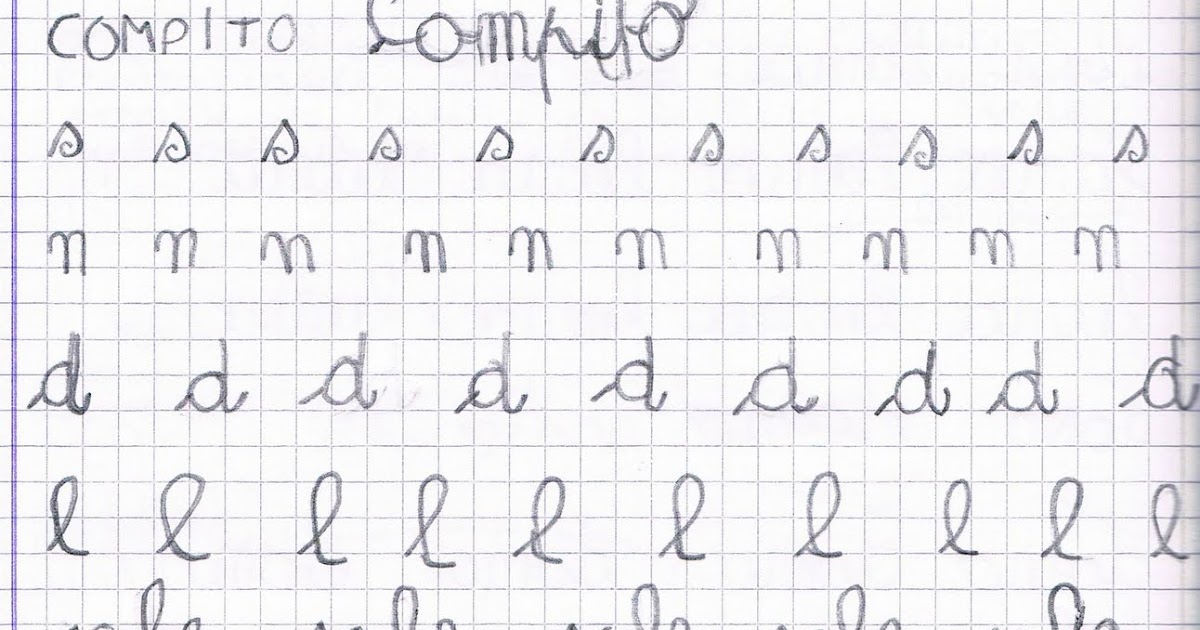 COMPITO Compito
s s s s s s s s s s s
n n n n n n n n n n
d d d d d d d d d
l l l l l l l l l l